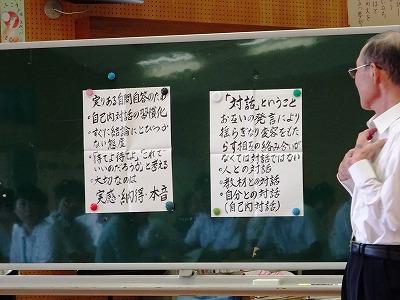 実りある自問自答のため
・自己内対話の習慣化
・すぐに結論にとびつか
ない態度
「待てよ待てよ」「これで
いいのだろうか」と考える
・大切なのは
実感・納得・本音
「対話」ということ
お互いの発言により
揺らぎなり変容をもた
らす相互の絡み合いが
なくては対話ではない
・人との対話
・教材との対話
・自分との対話
(自己内対話)